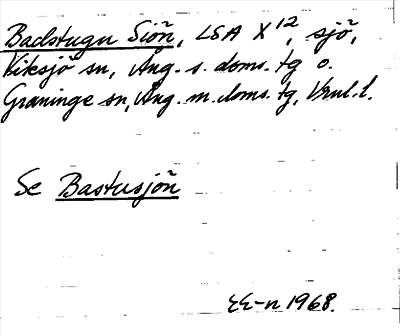 Badstugu Siön, LSA X 12, sjö,
Viksjö sn, Ång. s. doms. tg o.
Graninge sn, Ång. m. doms. tg, Vnl. l.
Se Bastusjön
EE-n 1968.